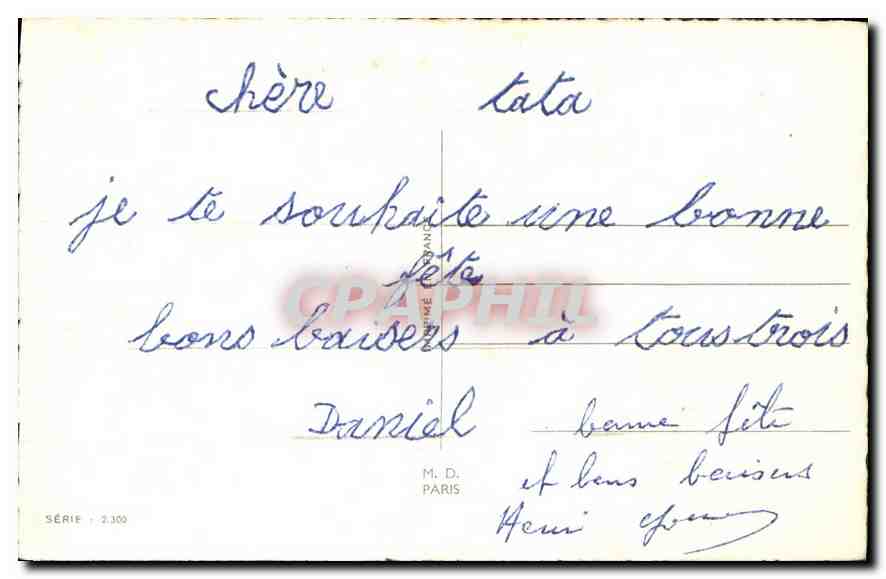 chère tata
je te souhaite une bonne
fête
bons baisers à tous trois
Daniel
bonne fête
et bons baisers
Henri
IMPRIMÉ EN FRANCE
M. D.
PARIS
SÉRIE : 2.300
CPAPHIL